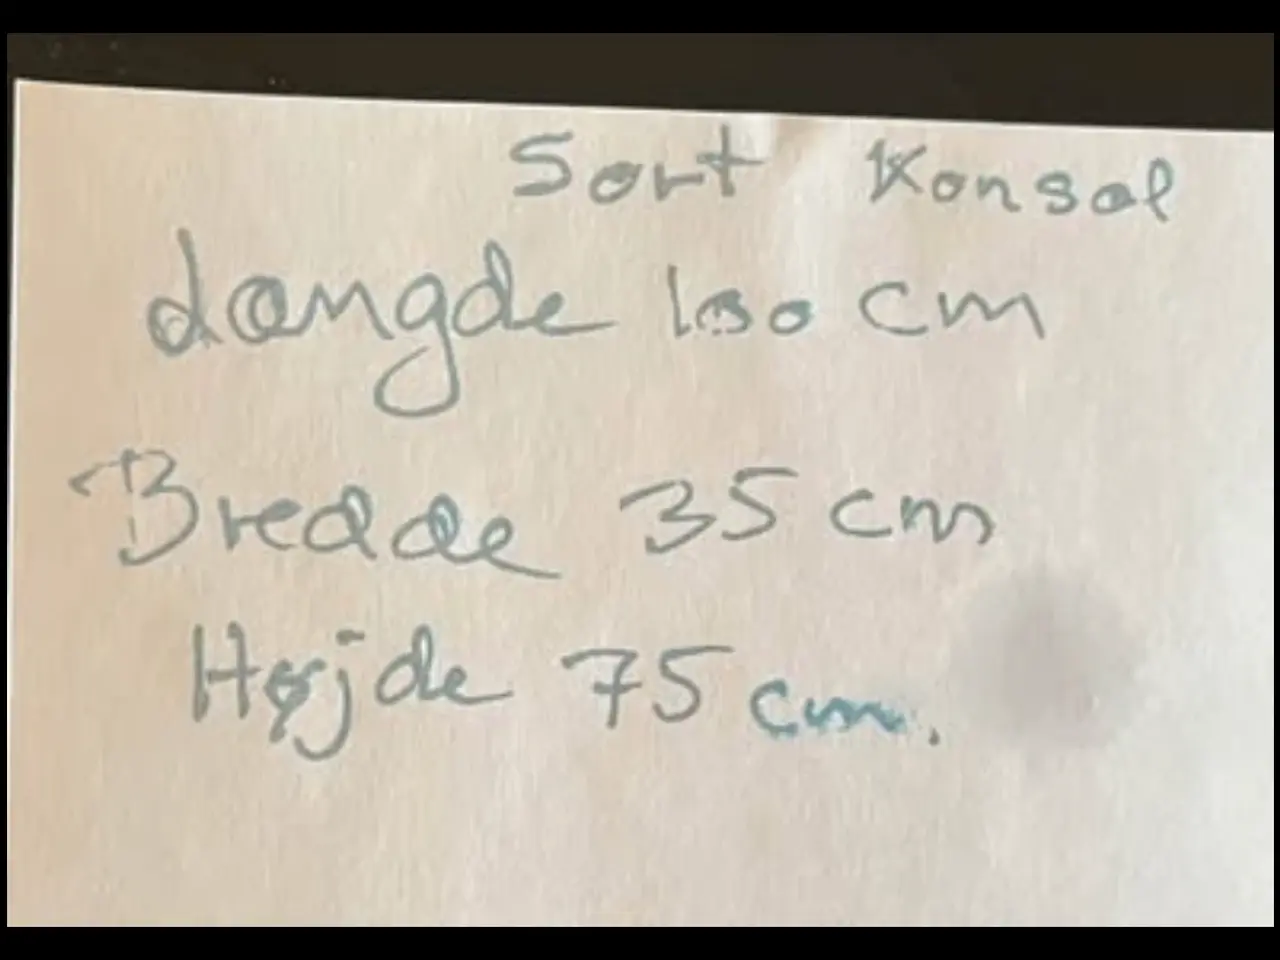 Sort Konsol
Længde 130 cm
Bredde 35 cm
Højde 75 cm.